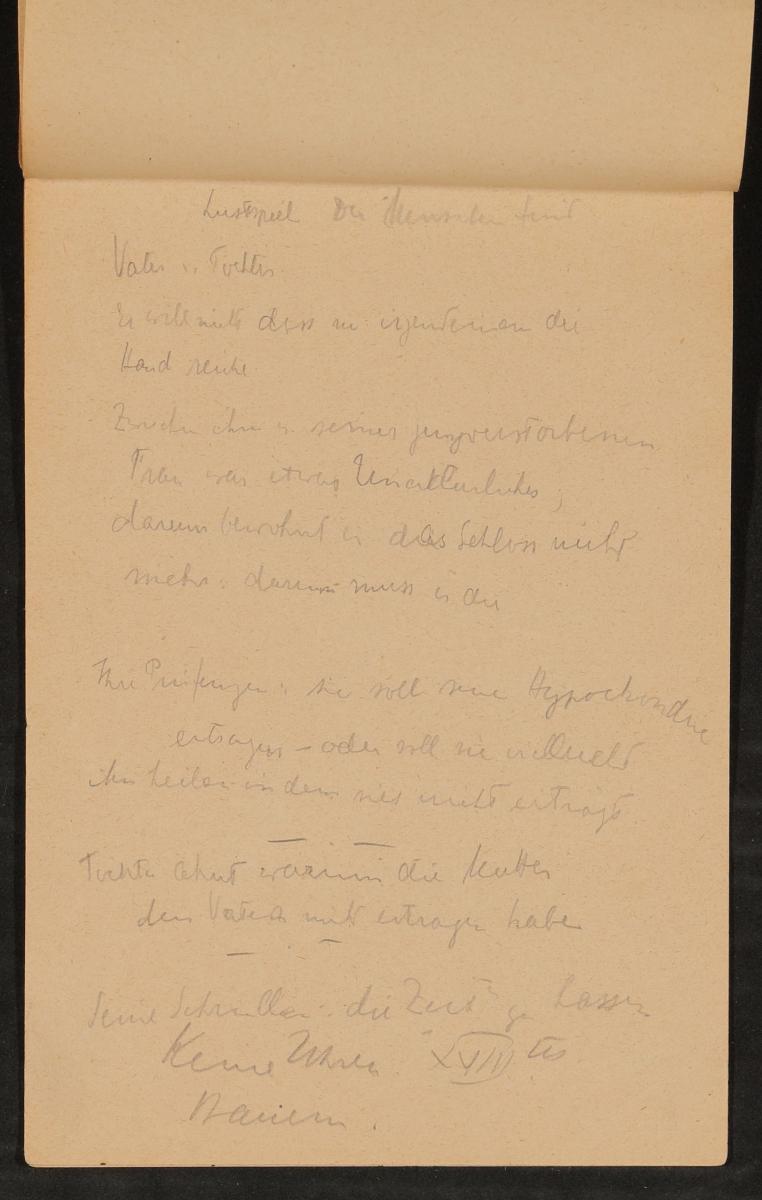 Lustspiel Der Menschenfeind
Vater u. Tochter
Er will nicht dass sie irgendeinem die
Hand reiche.
Zwischen ihm u. seiner jungverstorbenen
Frau war etwas Unerklärliches;
darum bewohnt er das Schloss nicht
mehr: darum muss er die
Ihre Prüfungen: sie soll seine Hypochondrie
ertragen – oder soll sie vielleicht
ihn heilen indem sies nicht erträgt
Tochter ahnt warum die Mutter
den Vater nicht ertragen habe
Seine Schrullen: die Zeit zu hassen
Keine Uhren. XVII tes
Bauern.